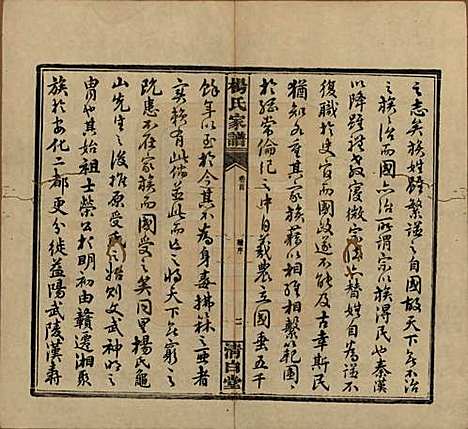 之志矣族姓繁謹之自國故天下無不治
之族治而國亦治所謂宗以族得民也秦漢
以降雖禮教寖微宗法亦替姓自為譜不
復職於史官而國政遂不能及古幸斯民
猶知各重其家族藉以相維相繫範圍
於經常倫紀之中自羲農立國垂五千
楊氏家譜
卷首
譜序
二
清白堂
餘年以至於今其不為身毒拂菻之亞者
實賴有此備並此而亡之將天下無窮之
應不在家族而國受之矣同里楊氏龜
山先生之後推原受氏之始則文武神明之
胄也其始祖士榮公於明初由贛遷湘聚
族於安化二都更分徙益陽武陵漢壽